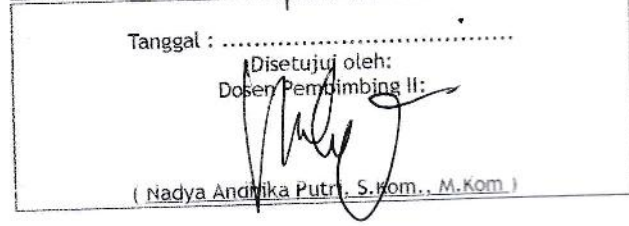 Tanggal : ......................................
Disetujui oleh:
Dosen Pembimbing II:
( Nadya Andhika Putri, S.Kom., M.Kom )